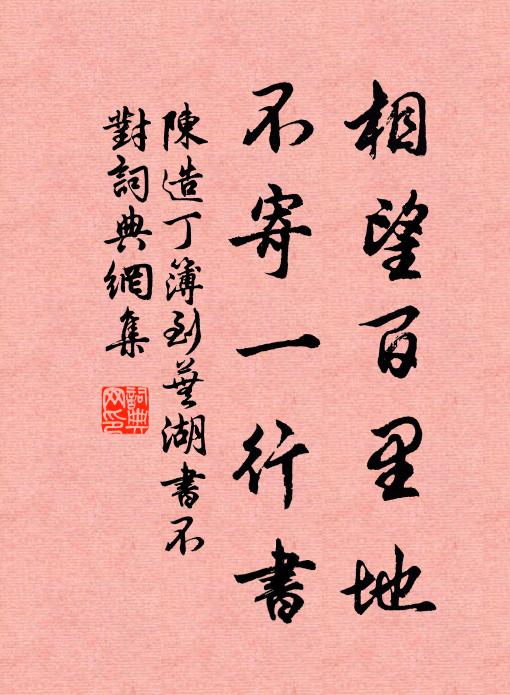 相望百里地
不寄一行書
陳造丁簿到蕪湖書不
對詞典網集
詞典
网印